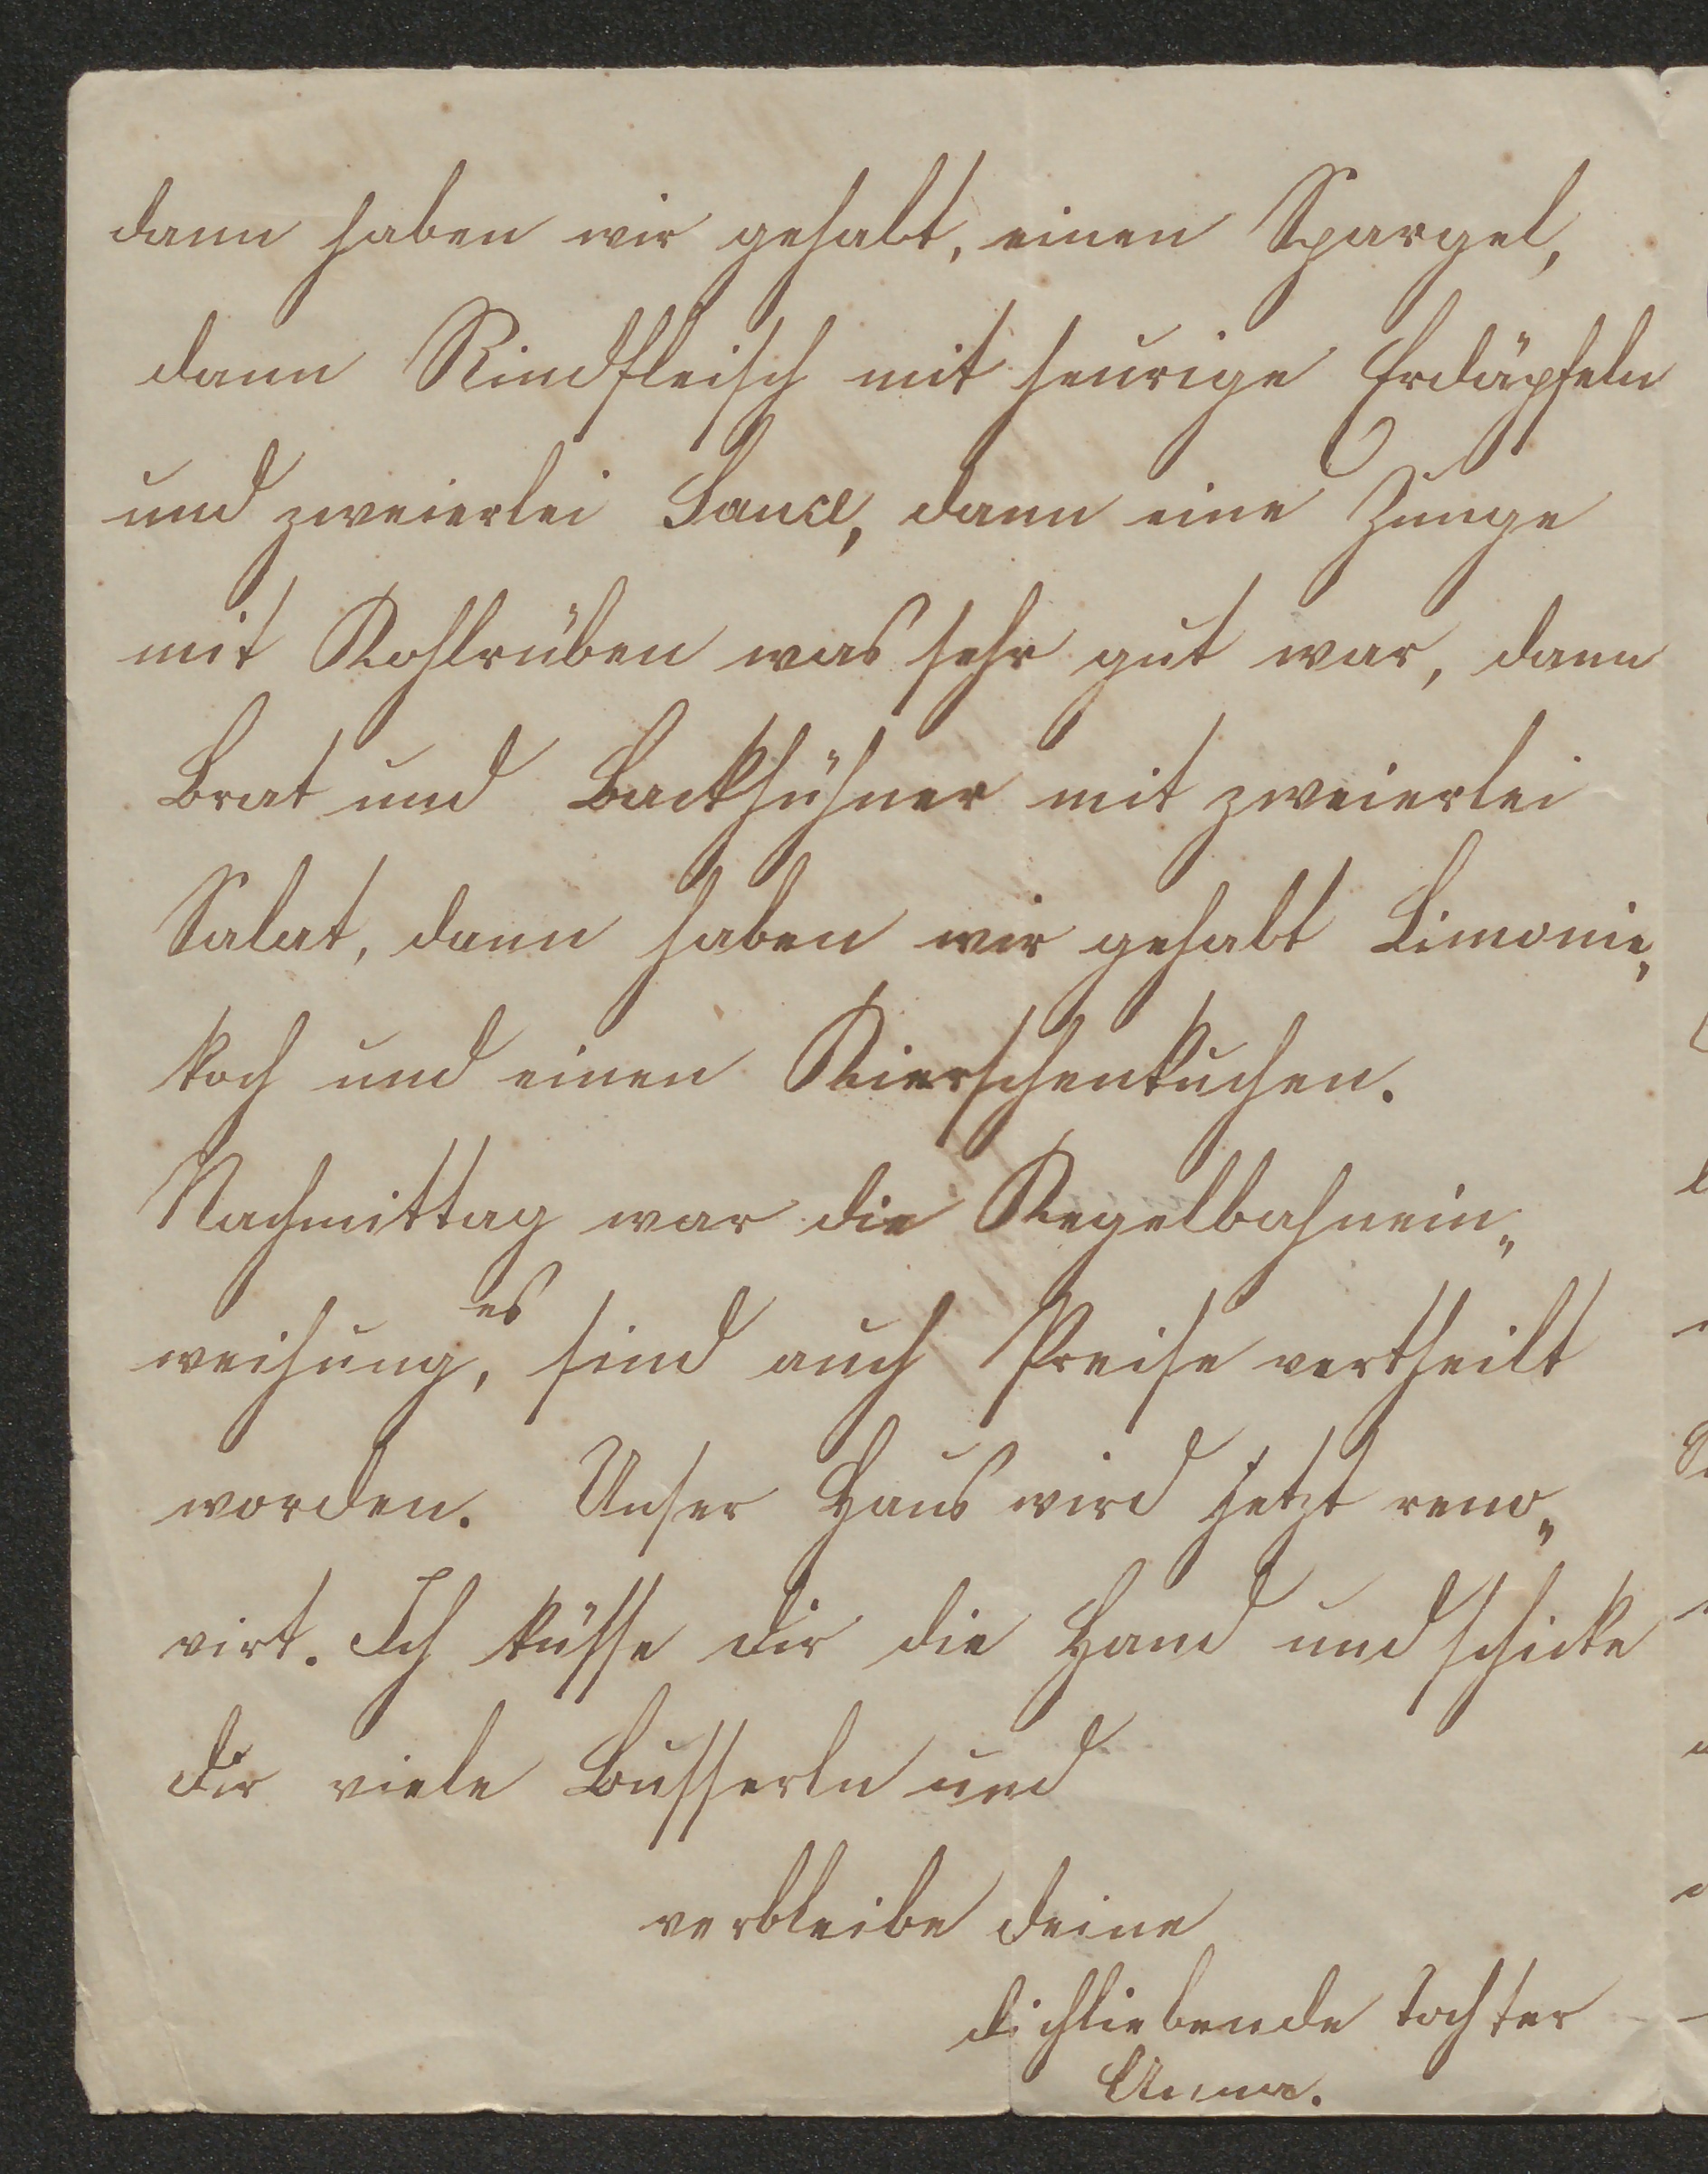 dann haben wir gehabt, einen Spargel,
dann Rindfleisch mit heurige Erdäpfeln
und zweierlei Sauce, dann eine Zunge
mit Kohlrüben was sehr gut war, dann
Brat und Backhühner mit zweierlei
Salat, dann haben wir gehabt Limonie„
koch und einen Kierschenkuchen.
Nachmittag war die Kegelbahnein„
weihung, es sind auch Preise vertheilt
worden. Unser Haus wird jetzt reno„
virt. Ich küsse dir die Hand und schicke
dir viele Busserln und
verbleibe deine
dichliebende Tochter
Anna.